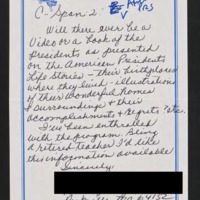 C-Span 2:
Will there ever be a
Video or a book of the
Presidents as presented
on the American Presidents
Life Stories - their birthplaces
where they lived - illustrations
of their wonderful homes
& surroundings & their
accomplishments & regrets? etc.
I've been enthralled
with the program. Being
a retired teacher I'd like
this information available
Sincerely